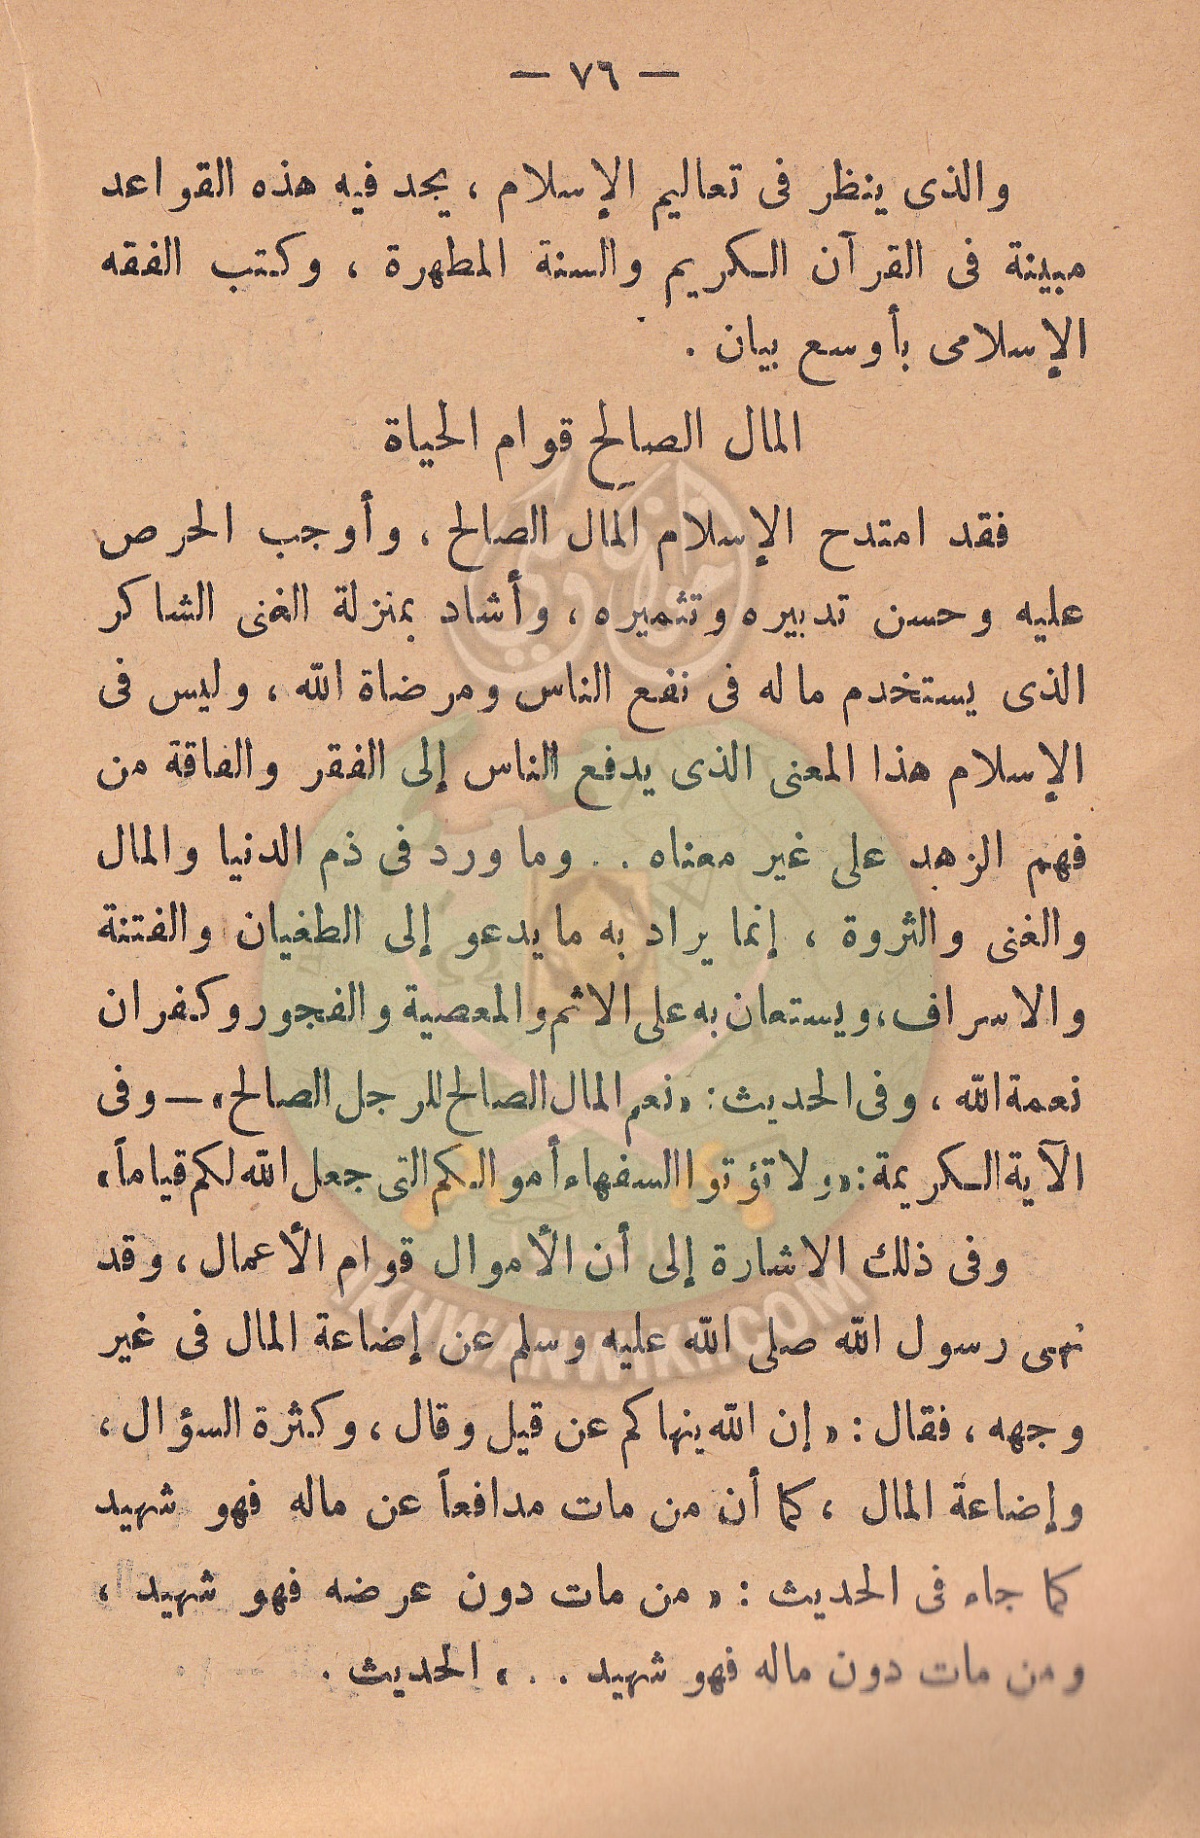 — ٧٦ —
والذى ينظر فى تعاليم الإسلام ، يجد فيه هذه القواعد
مبينة فى القرآن الكريم والسنة المطهرة ، وكتب الفقه
الإسلامى بأوسع بيان .
المال الصالح قوام الحياة
فقد امتدح الإسلام المال الصالح ، وأوجب الحرص
عليه وحسن تدبيره وتثميره ، وأشاد بمنزلة الغنى الشاكر
الذى يستخدم ماله فى نفع الناس ومرضاة الله ، وليس فى
الإسلام هذا المعنى الذى يدفع الناس إلى الفقر والفاقة من
فهم الزهد على غير معناه . . وما ورد فى ذم الدنيا والمال
والغنى والثروة ، إنما يراد به ما يدعو إلى الطغيان والفتنة
والاسراف ، ويستعان به على الاثم والمعصية والفجور وكفران
نعمة الله ، وفى الحديث : « نعم المال الصالح للرجل الصالح » — وفى
الآية الكريمة : « ولا تؤتوا السفهاء أموالكم التى جعل الله لكم قياماً »
وفى ذلك الاشارة إلى أن الأموال قوام الأعمال ، وقد
نهى رسول الله صلى الله عليه وسلم عن إضاعة المال فى غير
وجهه ، فقال : « إن الله ينهاكم عن قيل وقال ، وكثرة السؤال ،
وإضاعة المال ، كما أن من مات مدافعاً عن ماله فهو شهيد
كما جاء فى الحديث : « من مات دون عرضه فهو شهيد ،
ومن مات دون ماله فهو شهيد . . » الحديث .
IKHWANWIKI.COM